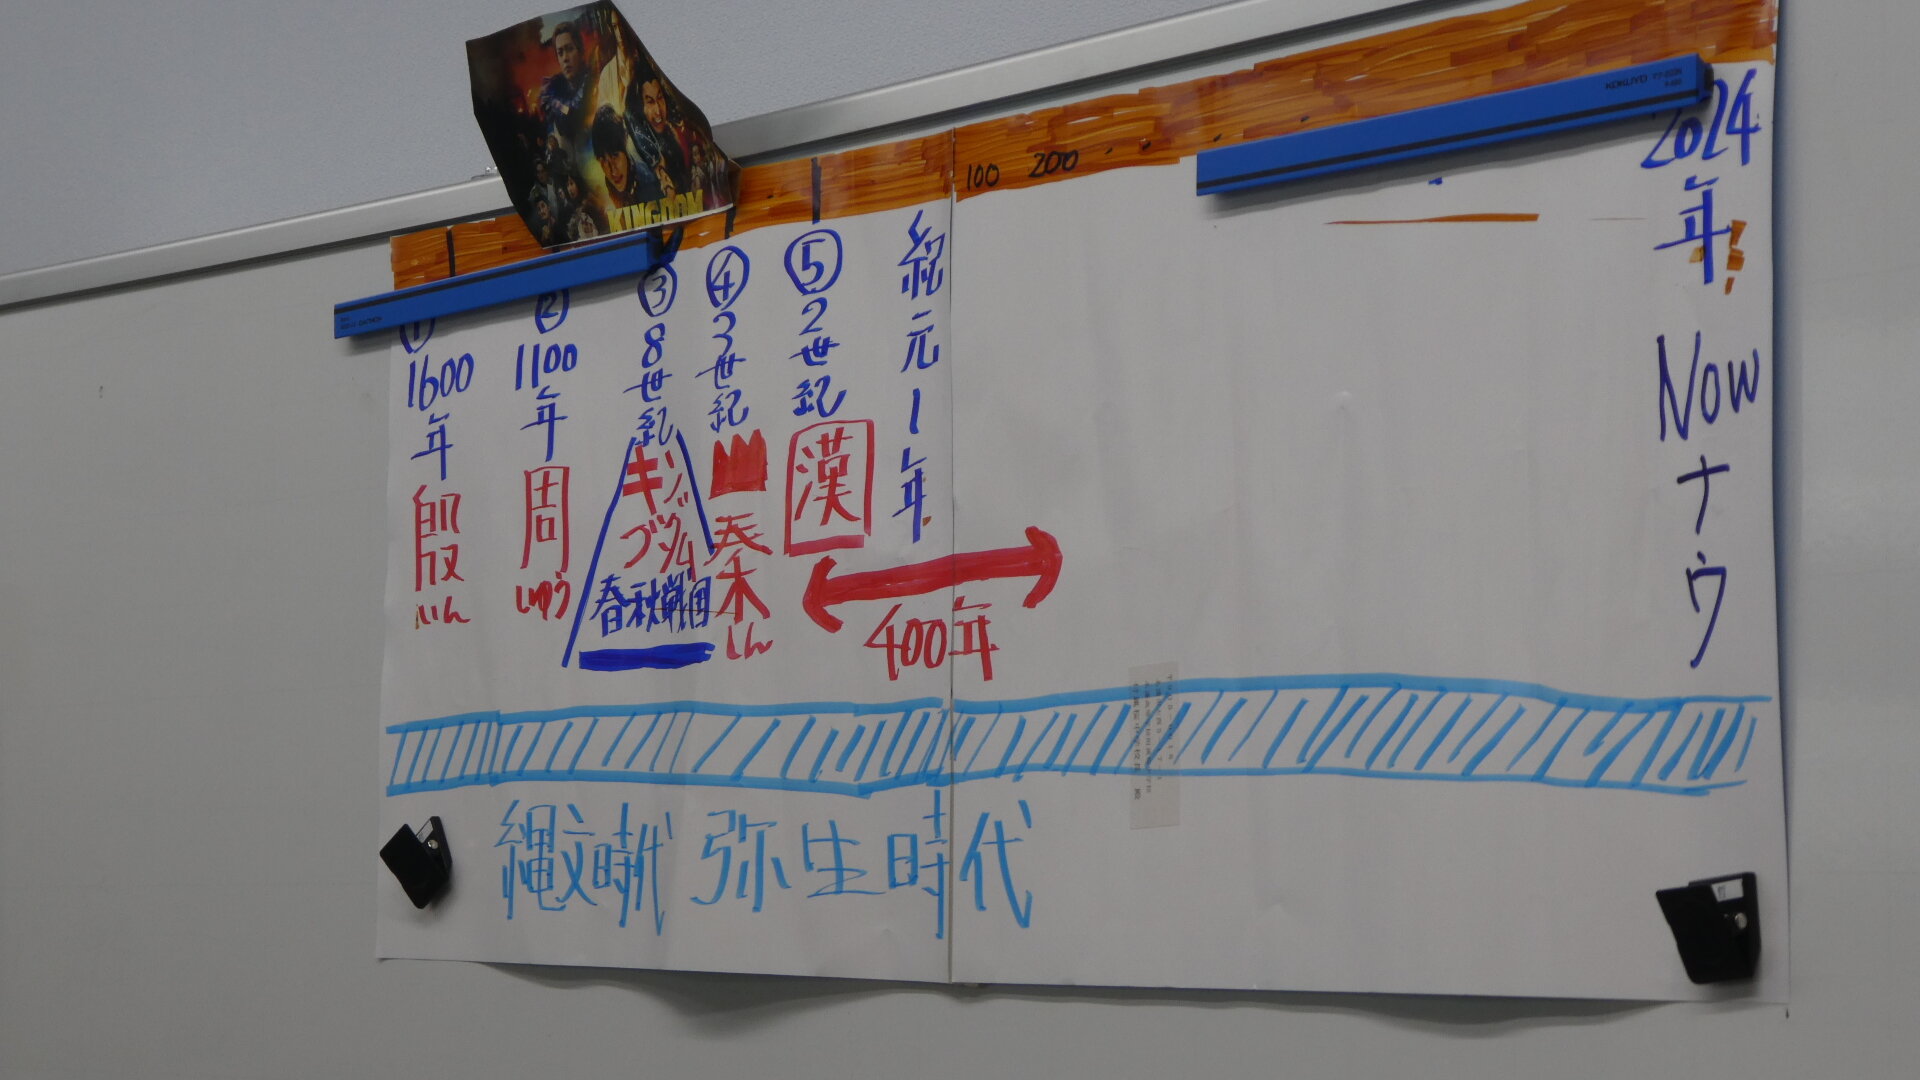 KINGDOM
100 200
① 1600年 殷 いん
② 1100年 周 しゅう
③ 8世紀 キングダム 春秋戦国
④ 3世紀 秦 しん
⑤ 2世紀 漢
紀元1年
400年
2024年 Now ナウ
縄文時代 弥生時代